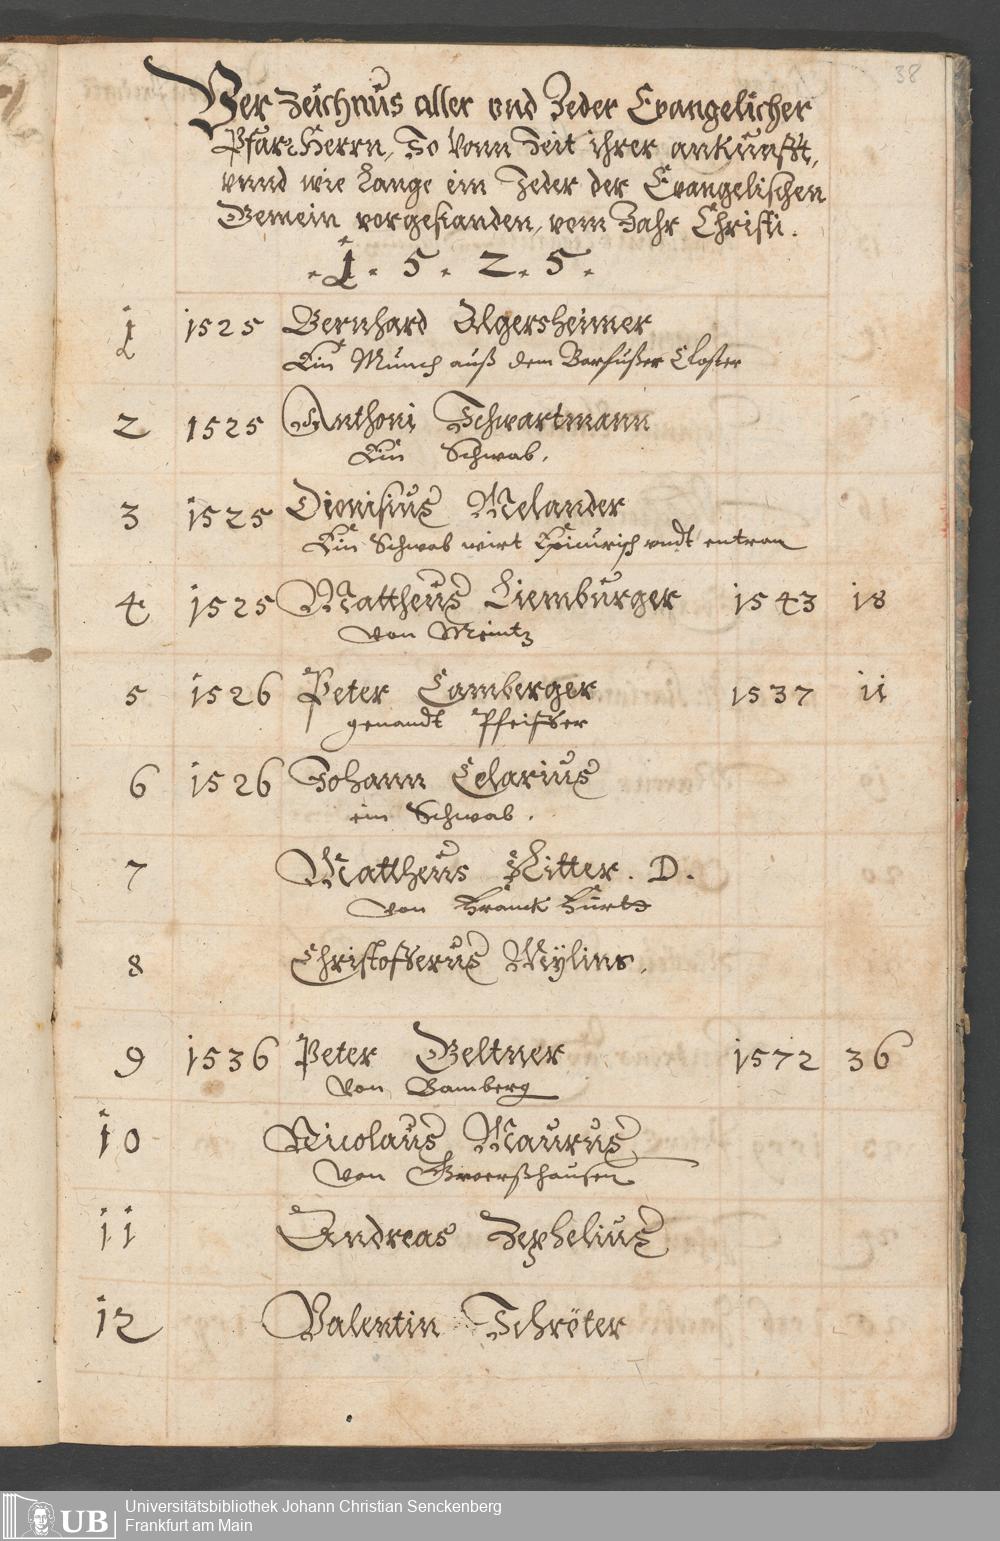 38
Verzeichnus aller vnd Jeder Evangelicher
Pfar Herrn, So Vonn Zeit ihrer ankunfft,
vnnd wie Lange ein Jeder der Evangelischen
Gemein vorgestanden, vom Jahr Christi.
.1. 5. 2. 5.
1 1525 Bernhard Algersheimer
Ein Münch auß dem Barfußer Closter
2 1525 Anthoni Schwartmann
Ein Schwab.
3 1525 Dionisius Melander
Ein Schwab wirt Epicurisch vndt entran
4 1525 Mattheus Liemburger 1543 18
von Meintz
5 1526 Peter Camberger 1537 11
genandt Pfeiffer
6 1526 Johann Celarius
ein Schwab.
7 Mattheus Ritter. D.
von Franckfurt
8 Christofferus Mÿlius.
9 1536 Peter Geltner 1572 36
Von Bamberg
10 Nicolaus Maurus
von
11 Andreas Zephelius
12 Valentin Schröter
UB
Universitätsbibliothek Johann Christian Senckenberg
Frankfurt am Main